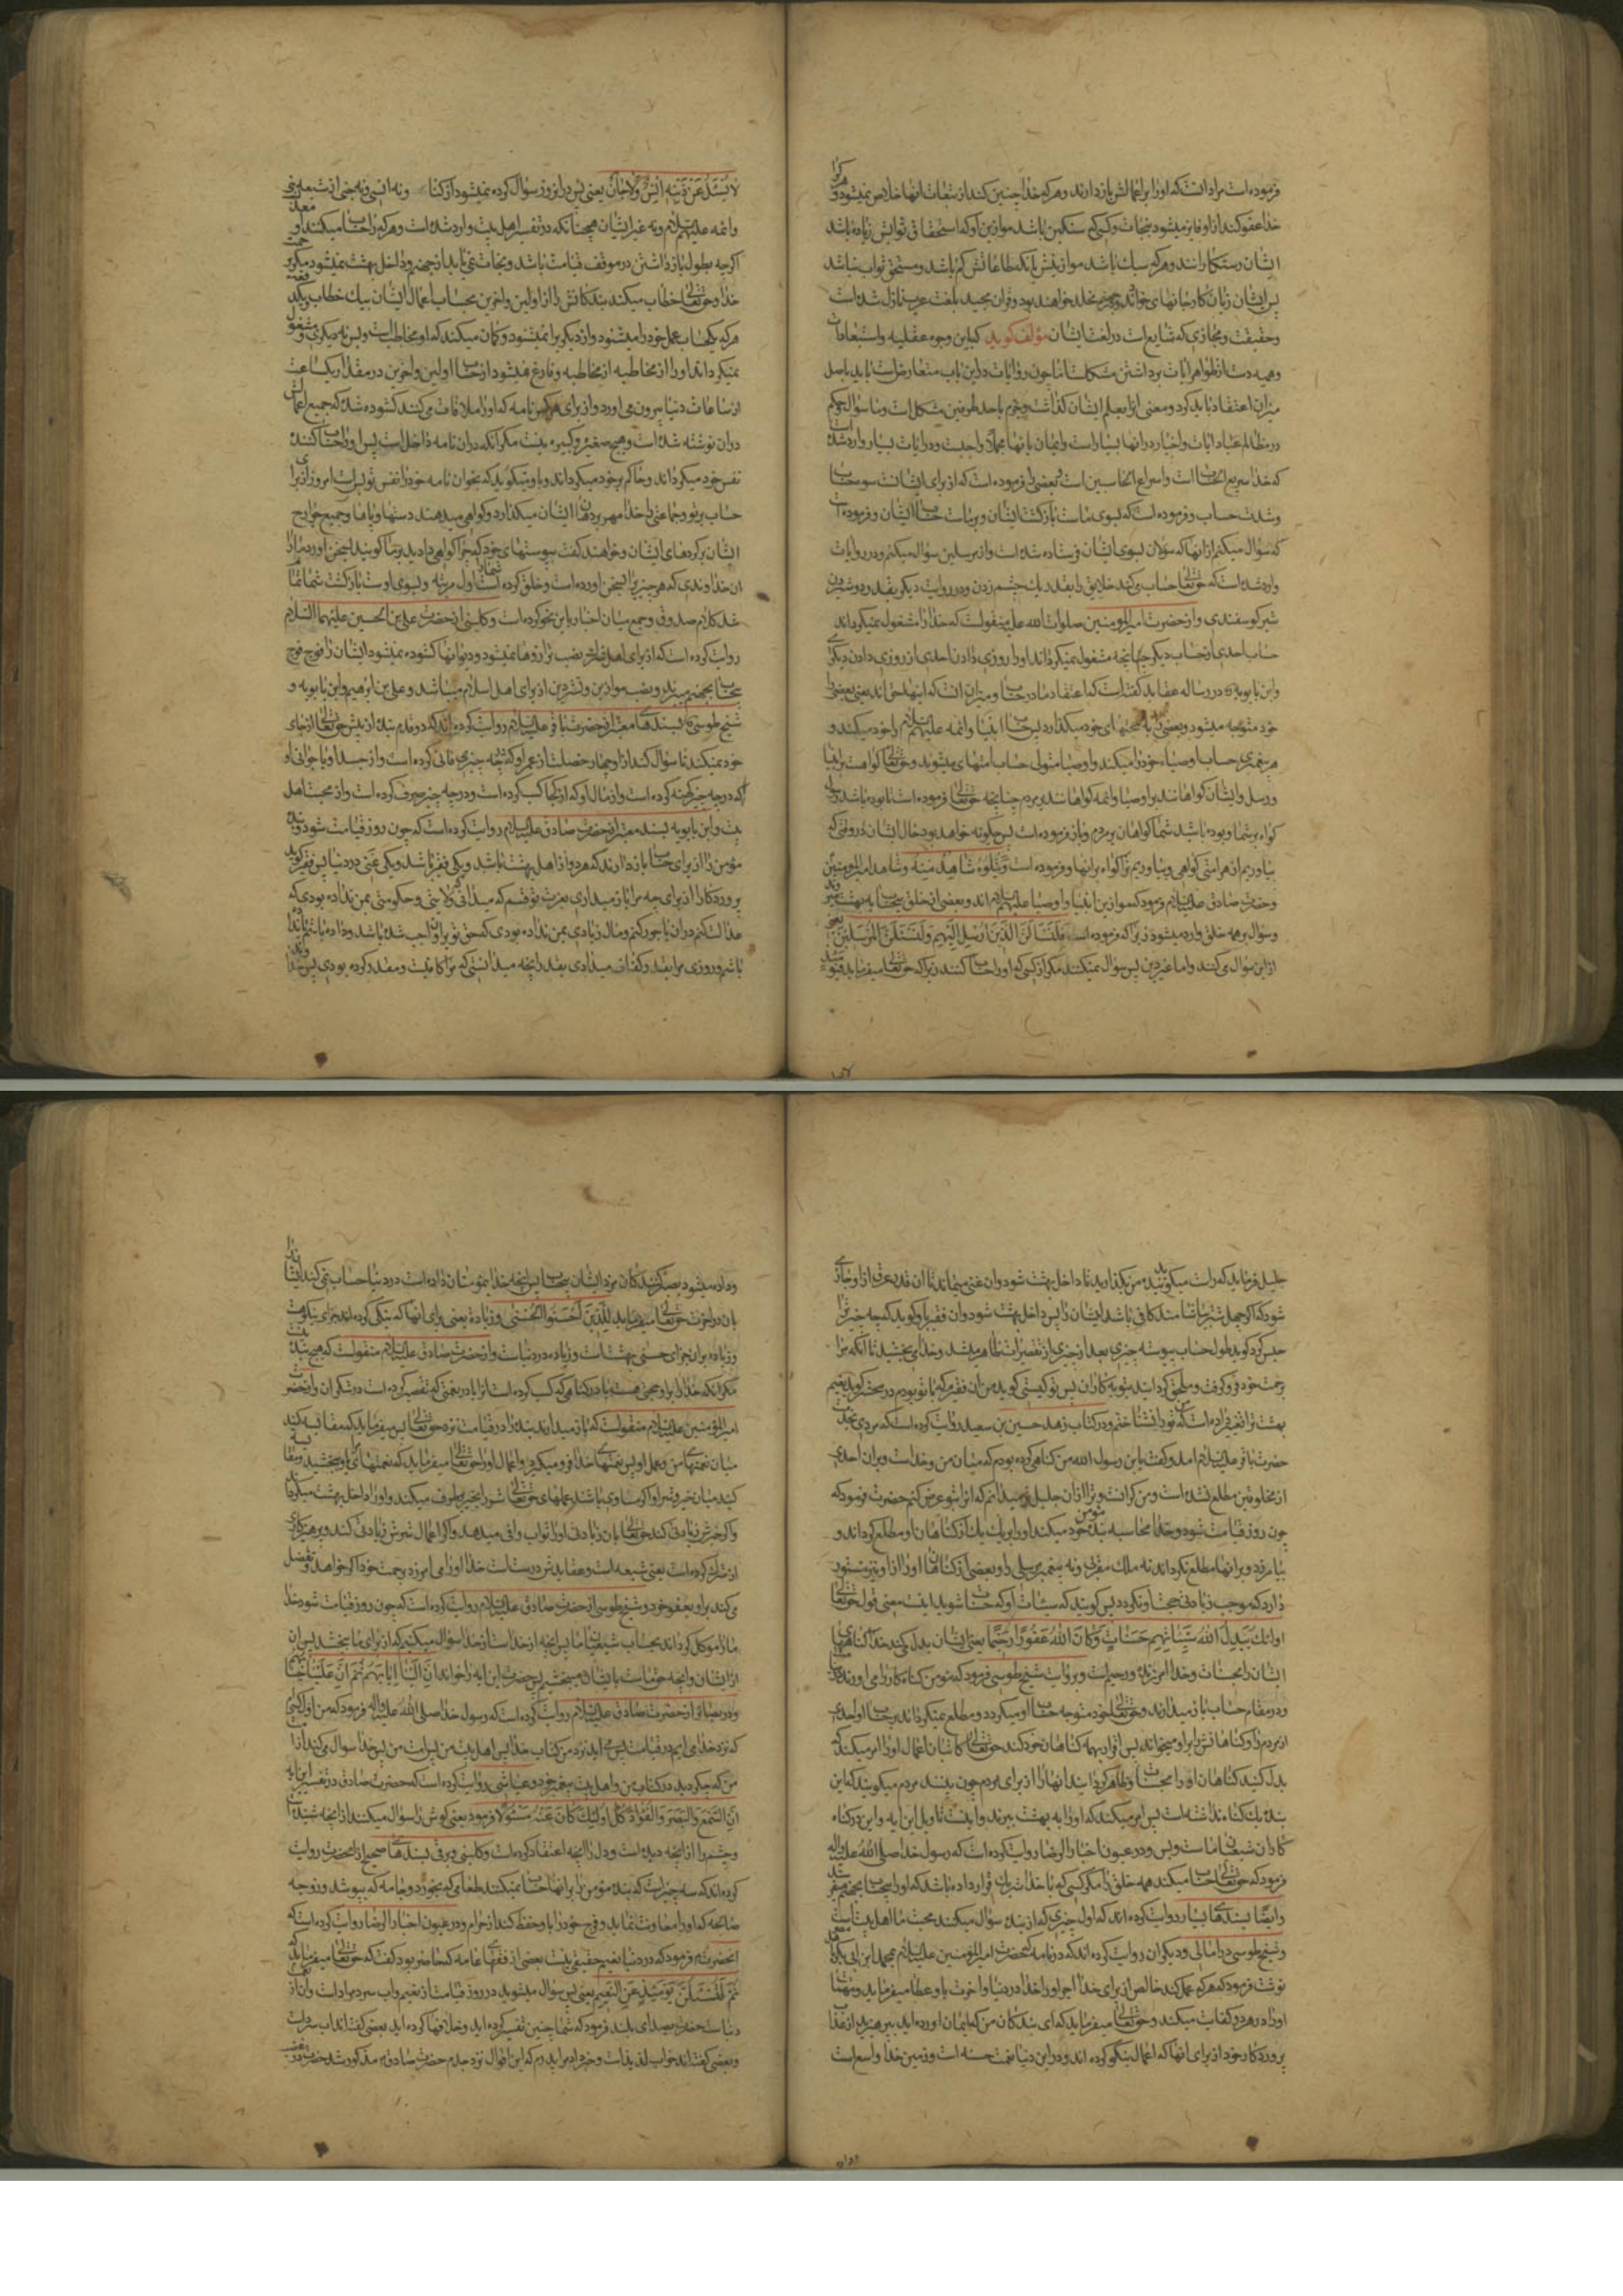 فرموده است مراد آنست که او را بر اعمالش باز دارند و هر که خدا چنین کند از تبعات آنها خلاص نمیشود و هر که را
خدا عفو کند از او فایز میشود بنجات و کسی که سنگین باشد موازین او که استحقاق ثوابش زیاده باشد
ایشان رستکارانند و هر که سبک باشد موازینش بآنکه طاعاتش کم باشد و مستحق ثواب نباشد
پس ایشان زیان کار جانهای خوداند و در جهنم مخلد خواهند بود و قران مجید بلغت عرب نازل شده است
و حقیقت و مجازی که شایع است در لغت ایشان مؤلف کوید که باین وجوه عقلیه و استبعادات
وهمیه دست از ظواهر ایات برداشتن مشکلست اما چون روایات در این باب متعارض است باید باصل
میزان اعتقاد باید کرد و معنی آنرا بعلم ایشان گذاشت و جزم باحد طرفین مشکل است و اما سؤال و حکم
در مظالم عباد ایات و اخبار در انها بسیار است و ایمان بانها مجملا واجبست و در ایات بسیار وارد شده
که خدا سریع الحساب است و اسرع الحاسبین است و بعضی را فرموده است که از برای ایشانست سوء حساب
و شدت حساب و فرموده است که بسوی ماست بازکشت ایشان و بر ماست حساب ایشان و فرموده است
که سؤال میکنم از انها که رسولان بسوی ایشان فرستاده شده است و از مرسلین سؤال میکنم و در روایات
وارد شده است که حق تعالی حساب میکند خلایق را بقدر یک چشم زدن و در روایت دیکر بقدر دوشیدن
شیر کوسفندی و از حضرت امیرالمؤمنین صلوات الله علیه منقولست که خدا را مشغول نمیکرداند
حساب احدی از حساب دیکر چنانچه مشغول نمیکرداند او را روزی دادن احدی از روزی دادن دیکری
و ابن بابویه ره در رساله عقاید کفته است که اعتقاد ما در حساب و میزان آنست که اینها حق اند بعضی را
خود متوجه میشود و بعضی را بحجتهای خود میکذارد پس حساب انبیا و ائمه علیهم السلام را خود میکند و
هر پیغمبری حساب اوصیاء خود را میکند و اوصیا متولی حساب امتهای میشوند و حق تعالی کواهست بر انبیا
و رسل و ایشان کواهانند بر اوصیا و ائمه کواهانند بر مردم چنانچه حق تعالی فرموده است تا بوده باشد رسول
کواه بر شما و بوده باشد شما کواهان بر مردم و باز فرموده است پس چکونه خواهد بود حال ایشان در وقتی که
بیاوریم از هر امتی کواهی و بیاوریم ترا کواه بر انها و فرموده است وَیَتْلُوهُ شاهِدٌ مِنْهُ و شاهد امیرالمؤمنین
و حضرت صادق علیه السلام فرمود که موازین انبیا و اوصیا علیهم السلام اند و بعضی از خلق بیحساب به بهشت میروند
و سؤال بر همه خلق وارد میشود زیرا که فرموده است فَلَنَسْأَلَنَّ الَّذِینَ أُرْسِلَ إِلَیْهِمْ وَلَنَسْأَلَنَّ الْمُرْسَلِینَ یعنی
از دین سؤال میکنند و اما غیر دین پس سؤال نمیکنند مکر از کسی که او را حساب کنند زیرا که حق تعالی میفرماید فیومئذ
لا یُسْئَلُ عَنْ ذَنْبِهِ إِنْسٌ وَلا جَانٌّ یعنی پس در انروز سؤال کرده نمیشود از کناه نه انسی و نه جنی از شیعه
و ائمه علیهم السلام و نه غیر ایشان همچنانکه در تفسیر اهل بیت وارد شده است و هر که را حساب میکنند او معذب است
اکرچه بطول باز داشتن در موقف قیامت باشد و نجات نمی یابد از جهنم و داخل بهشت نمیشود مکر برحمت
خدا و حق تعالی خطاب میکند بندکانش را از اولین و اخرین بحساب اعمال ایشان بیک خطاب و یک دفعه
هر که یک حساب عمل خود را میشنود و از دیکر برا نمیشنود و کمان میکند که او مخاطب است و بس نه دیکری و مشغول
نمیکرداند او را از مخاطبه از مخاطبه و فارغ میشود از حساب اولین و اخرین در مقدار یکساعت
از ساعات دنیا و بیرون می اورد از برای هر کس نامه که او را ملاقات می کند کشوده شده که جمیع اعمال
در ان نوشته شده است و هیچ صغیره و کبیره نیست مکر آنکه در ان نامه داخل است پس او را حساب کننده
نفس خود میکرداند و حاکم بر خود میکرداند و باو میکوید که بخوان نامه خود را نفس تو بس است امروز از برای
حساب بر تو و جماعتی را خدا مهر بر دهان ایشان میکذارد و کواهی میدهند دستها و پاها و جمیع جوارح
ایشان بر کرده های ایشان و خواهند کفت بپوستهای خود که چرا کواهی دادید بر ما کویند بسخن اورد ما را
ان خداوندی که هر چیز را بسخن اورده است و خلق کرده است شما را اول مرتبه و بسوی اوست بازکشت شما تمام
شد کلام صدوق و جمع میان اخبار باین نحو کرده است و کلینی از حضرت علی بن الحسین علیهما السلام
روایت کرده است که از برای اهل شرک نصب ترازوها نمیشود و دیوانها کشوده نمیشود ایشان را فوج فوج
بیحساب بجهنم میبرند و نصب موازین و نشر دواوین از برای اهل اسلام میباشد و علی بن ابرهیم و ابن بابویه و
شیخ طوسی ره بسندهای معتبر از حضرت باقر علیه السلام روایت کرده اند که دو قدم بنده از پیش حق تعالی از جای
خود نمیکند تا سؤال کند از او چهار خصلت از عمر او که در چه چیز فانی کرده است و از جسد او یا جوانی او
که در چه چیز کهنه کرده است و از مال او که از کجا کسب کرده است و در چه چیز صرف کرده است و از محبت اهل
بیت و ابن بابویه بسند معتبر از حضرت صادق علیه السلام روایت کرده است که چون روز قیامت شود دو بنده
مؤمن را از برای حساب باز دارند که هر دو از اهل بهشت باشند و یکی فقیر باشد و یکی غنی در دنیا پس فقیر کوید
پروردکارا از برای چه مرا باز میداری بعزت تو قسم که میدانی که ولایتی و حکومتی بمن نداده بودی که
عدالت کنم در ان یا جور کنم و مال زیادی بمن نداده بودی که حق تو بر ان واجب شده باشد و داده باشم یا نداده
باشم و روزی مرا بقدر کفاف میدادی بقدر انچه میدانستی که مرا کافیست و مقدر کرده بودی پس خداوند
جلیل فرماید که راست میکوید بنده من بکذارید تا داخل بهشت شود و ان غنی میماند تا ان قدر عرق از او جاری
شود که اکر چهل شتر بیاشامند کافی باشد ایشان را پس داخل بهشت شود و ان فقیر باو کوید که چه چیز ترا
حبس کرد کوید طول حساب پیوسته چیزی بعد از چیزی از تقصیرات ظاهر میشد و خدا می بخشید تا آنکه مرا
برحمت خود فرو کرفت و ملحق کردانید بتوبه کاران پس تو کیستی کوید من ان فقیرم که با تو بودم در محشر کوید نعیم
بهشت ترا تغییر داده است که تو را نشناختم و در کتاب زهد حسین بن سعید روایت کرده است که مردی بخدمت
حضرت باقر علیه السلام امد و کفت یا بن رسول الله من کناهی کرده بودم که میان من و خداست و بران احدی
از مخلوقین مطلع نشده است و من کرانست و ترا از ان جلیل تر میدانم که انرا بتو عرض کنم حضرت فرمود که
چون روز قیامت شود و خدا محاسبه بنده مؤمن خود میکند او را بر یک یک از کناهان او مطلع کرداند و
بیامرزد و بر انها مطلع نکرداند نه ملک مقربی و نه پیغمبر مرسلی را و بعضی از کناهان او را از او نیز مستور
دارد که موجب زیادتی خجالت او نکردد پس کویند که سیئات او که حسنات شوید اینست معنی قول حق تعالی
اولئک یُبَدِّلُ اللهُ سَیِّئاتِهِمْ حَسَناتٍ وَکانَ اللهُ غَفُوراً رَحِیماً یعنی ایشان بدل کند خدا کناهان
ایشان را بحسنات و خدا امرزنده و رحیم است و بروایت شیخ طوسی فرمود که مؤمن کناه کار را می اورند
و در مقام حساب باز میدارند و حق تعالی خود متوجه حساب او میکردد و مطلع نمیکرداند بر حساب او احدی
از مردم را و کناهانش را بر او میخواند پس اقرار بهمه کناهان خود کند حق تعالی کاتبان اعمال او را امر میکند که
بدل کنید کناهان او را بحسنات و ظاهر کردانید انها را از برای مردم چون بینند مردم میکویند که این
بنده یک کناه نداشته است پس امر میکند که او را به بهشت ببرند و اینست تاویل این ایه و این در کناه
کاران شیعیان ما است و بس و در عیون اخبار الرضا روایت کرده است که رسول خدا صلی الله علیه واله
فرمود که حق تعالی حساب میکند همه خلق را مکر کسی که با خدا شریک قرار داده باشد که او را بیحساب بجهنم میفرستد
و ایضا بسندهای بسیار روایت کرده اند که اول چیزی که از بنده سؤال میکنند محبت ما اهل بیت است
و شیخ طوسی در امالی و دیکران روایت کرده اند که در نامه که حضرت امیرالمؤمنین علیه السلام بمحمد ابن ابی بکر
نوشت فرمود که هر که عمل کند خالص از برای خدا اجر او را خدا در دنیا و اخرت باو عطا میفرماید و مهمات
او را در هر دو کفایت میکند و حق تعالی میفرماید که ای بندکان من که ایمان اورده اید بپرهیزید از عذاب
پروردکار خود از برای انها که اعمال نیکو کرده اند و در این دنیا نعمت حسنه است و زمین خدا واسع است
و داده میشود بصبر کنندکان مزد ایشان بیحساب پس انچه خدا بمؤمنان داده است در دنیا حساب نمی کند ایشان را
بان در اخرت حق تعالی میفرماید لِلَّذِینَ أَحْسَنُوا الْحُسْنی وَزِیادَةٌ یعنی برای انها که نیکی کرده اند جزای نیکوست
و زیاده بر ان جزای حسنی بهشتست و زیاده در دنیاست و از حضرت صادق علیه السلام منقولست که هیچ بنده نیست
مکر انکه خدا را بر او حجتی هست یا در کناهی که کسب کرده است و یا در نعمتی که تقصیر کرده است در شکر ان و از حضرت
امیرالمؤمنین علیه السلام منقولست که باز میدارند بنده را در قیامت نزد حق تعالی پس میفرماید که مقایسه کنید
میان نعمتهای من و عمل او پس نعمتهای خدا فرو میکیرد اعمال او را حق تعالی میفرماید که نعمتهای مرا باو ببخشید و مقایسه
کنید میان خیر و شر او اکر مساوی باشد عملهای حق تعالی شر را بخیر برطرف میکند و او را داخل بهشت میکرداند
و اکر خیرش زیادتی کند حق تعالی بان زیادتی او را ثواب وافی میدهد و اکر اعمال شرش زیادتی کند و پرهیزکاری
از شرک کرده است یعنی شیعه است و عقایدش درستست خدا او را می امرزد برحمت خود اکر خواهد و تفضل
می کند بر او بعفو خود و شیخ طوسی از حضرت صادق علیه السلام روایت کرده است که چون روز قیامت شود خدا
ما را موکل کرداند بحساب شیعیان ما پس انچه از خداست از خدا سؤال میکنیم که از برای ما ببخشد پس ان
از ایشان و انچه حق ماست بایشان میبخشیم پس حضرت این ایه را خواند إِنَّ إِلَیْنا إِیابَهُمْ ثُمَّ إِنَّ عَلَیْنا حِسابَهُمْ
و در بصائر از حضرت صادق علیه السلام روایت کرده است که رسول خدا صلی الله علیه واله فرمود که من اول کسی ام
که نزد خدا می ایم در قیامت پس می اید نزد من کتاب خدا پس اهل بیت من پس امت من پس خدا سؤال می کند از امت
من که چه کردید در کتاب من و اهل بیت پیغمبر خود و عیاشی روایت کرده است که حضرت صادق در تفسیر این ایه
إِنَّ السَّمْعَ وَالْبَصَرَ وَالْفُؤادَ کُلُّ أُولئِکَ کانَ عَنْهُ مَسْئُولاً فرمود یعنی کوش را سؤال میکنند از انچه شنیده است
و چشم را از انچه دیده است و دل را از انچه اعتقاد کرده است و کلینی و برقی بسندهای صحیح از انحضرت روایت
کرده اند که سه چیز است که بنده مؤمن را بر انها حساب نمیکنند طعامی که بخورد و جامه که بپوشد و زوجه
صالحه که او را معاونت نماید و فرج خود را باو حفظ کند از حرام و در عیون اخبار الرضا روایت کرده است که
انحضرت فرمود که در دنیا نعیم حقیقی نیست بعضی از فقهای عامه که حاضر بود کفت که حق تعالی میفرماید که
ثُمَّ لَتُسْئَلُنَّ یَوْمَئِذٍ عَنِ النَّعِیمِ یعنی پس سؤال میشوید در روز قیامت از نعیم و اب سرد مراد است و ان از
دنیاست حضرت بصدای بلند فرمود که شما چنین تفسیر کرده اید و خلافها کرده اید بعضی کفته اند اب سرد است
و بعضی کفته اند خواب لذیذ است و خبر داد مرا پدرم که این اقوال نزد جدم حضرت صادق مذکور شد حضرت